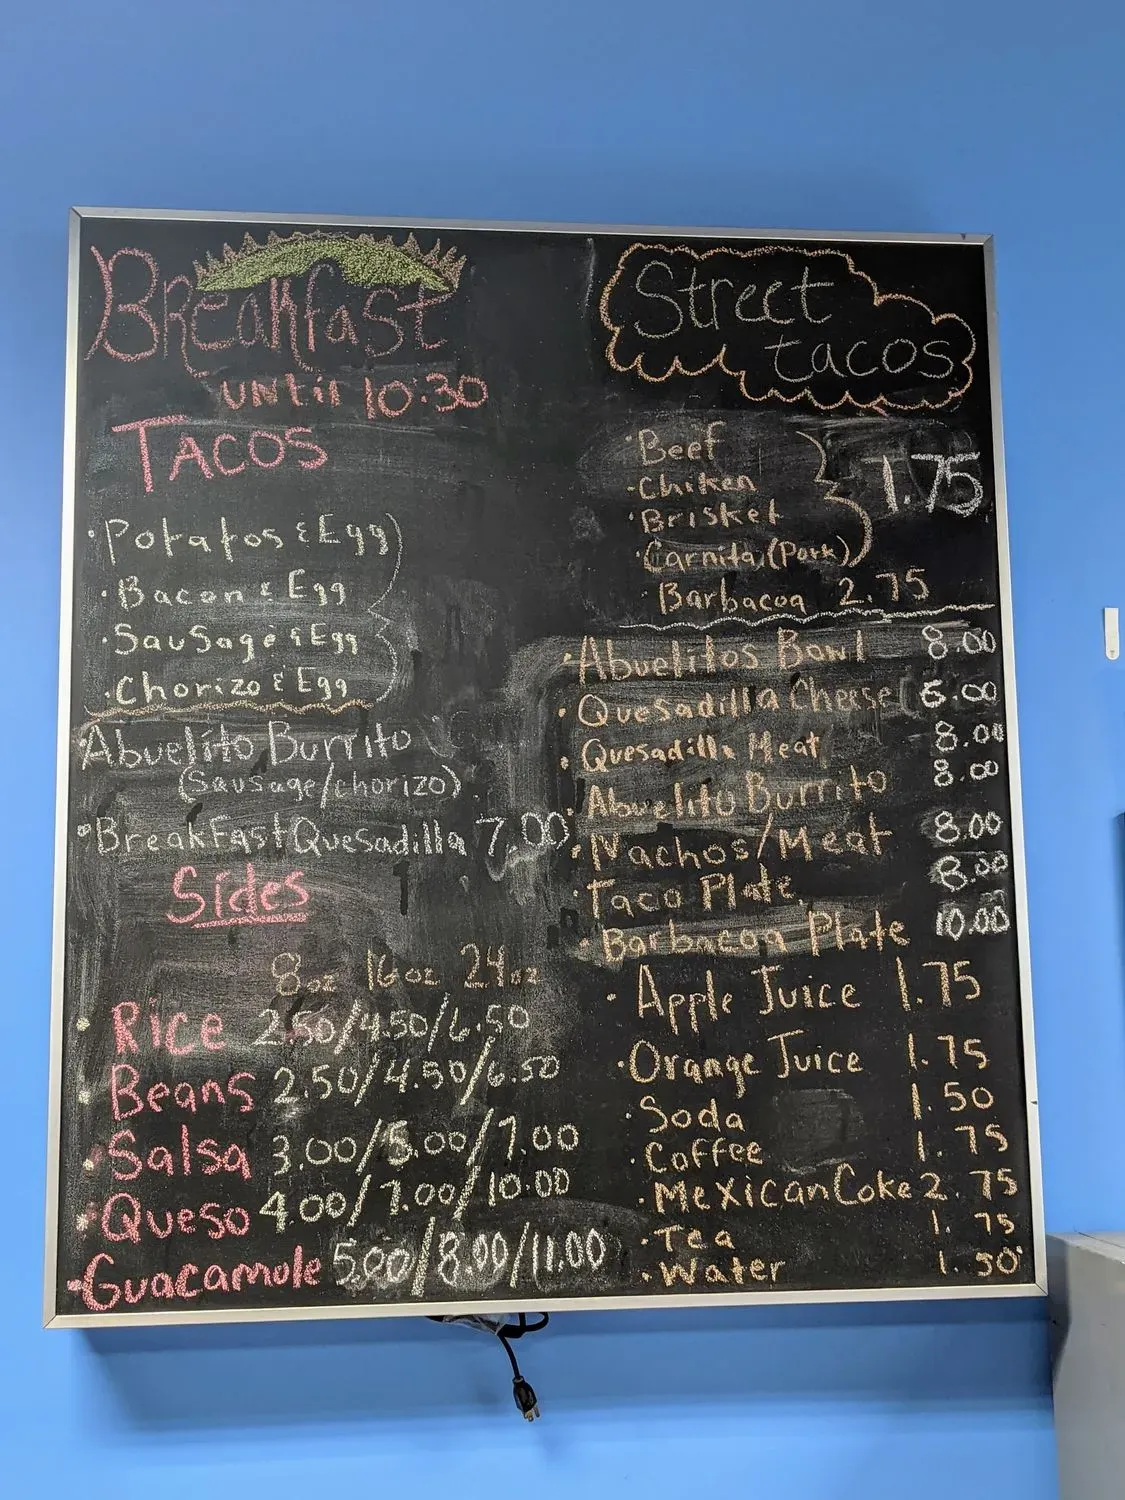 Breakfast
until 10:30
TACOS
· Potatos & Egg
· Bacon & Egg
· Sausage & Egg
· Chorizo & Egg
Abuelito Burrito
(Sausage/chorizo)
· Breakfast Quesadilla 7.00
Sides
8oz 16oz 24oz
· Rice 2.50/4.50/6.50
· Beans 2.50/4.50/6.50
· Salsa 3.00/5.00/7.00
· Queso 4.00/7.00/10.00
· Guacamole 5.00/8.00/11.00
Street
tacos
· Beef
· Chiken
· Brisket
· Carnita (Pork)
1.75
Barbacoa 2.75
· Abuelitos Bowl 8.00
· Quesadilla Cheese 6.00
· Quesadilla Meat 8.00
· Abuelito Burrito 8.00
· Nachos/Meat 8.00
· Taco Plate 8.00
· Barbacoa Plate 10.00
· Apple Juice 1.75
· Orange Juice 1.75
· Soda 1.50
· Coffee 1.75
· Mexican Coke 2.75
· Tea 1.75
· Water 1.50